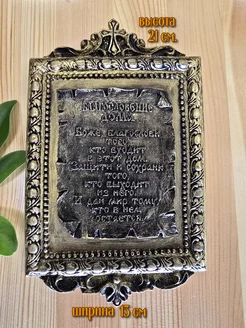 высота
21 см.
БЛАГОСЛОВЕНИЕ
ДОМА
Боже, благослови
того,
кто входит
в этот дом.
Защити и сохрани
того,
кто выходит
из него.
И дай мир тому,
кто в нем
остается.
ширина 15 см